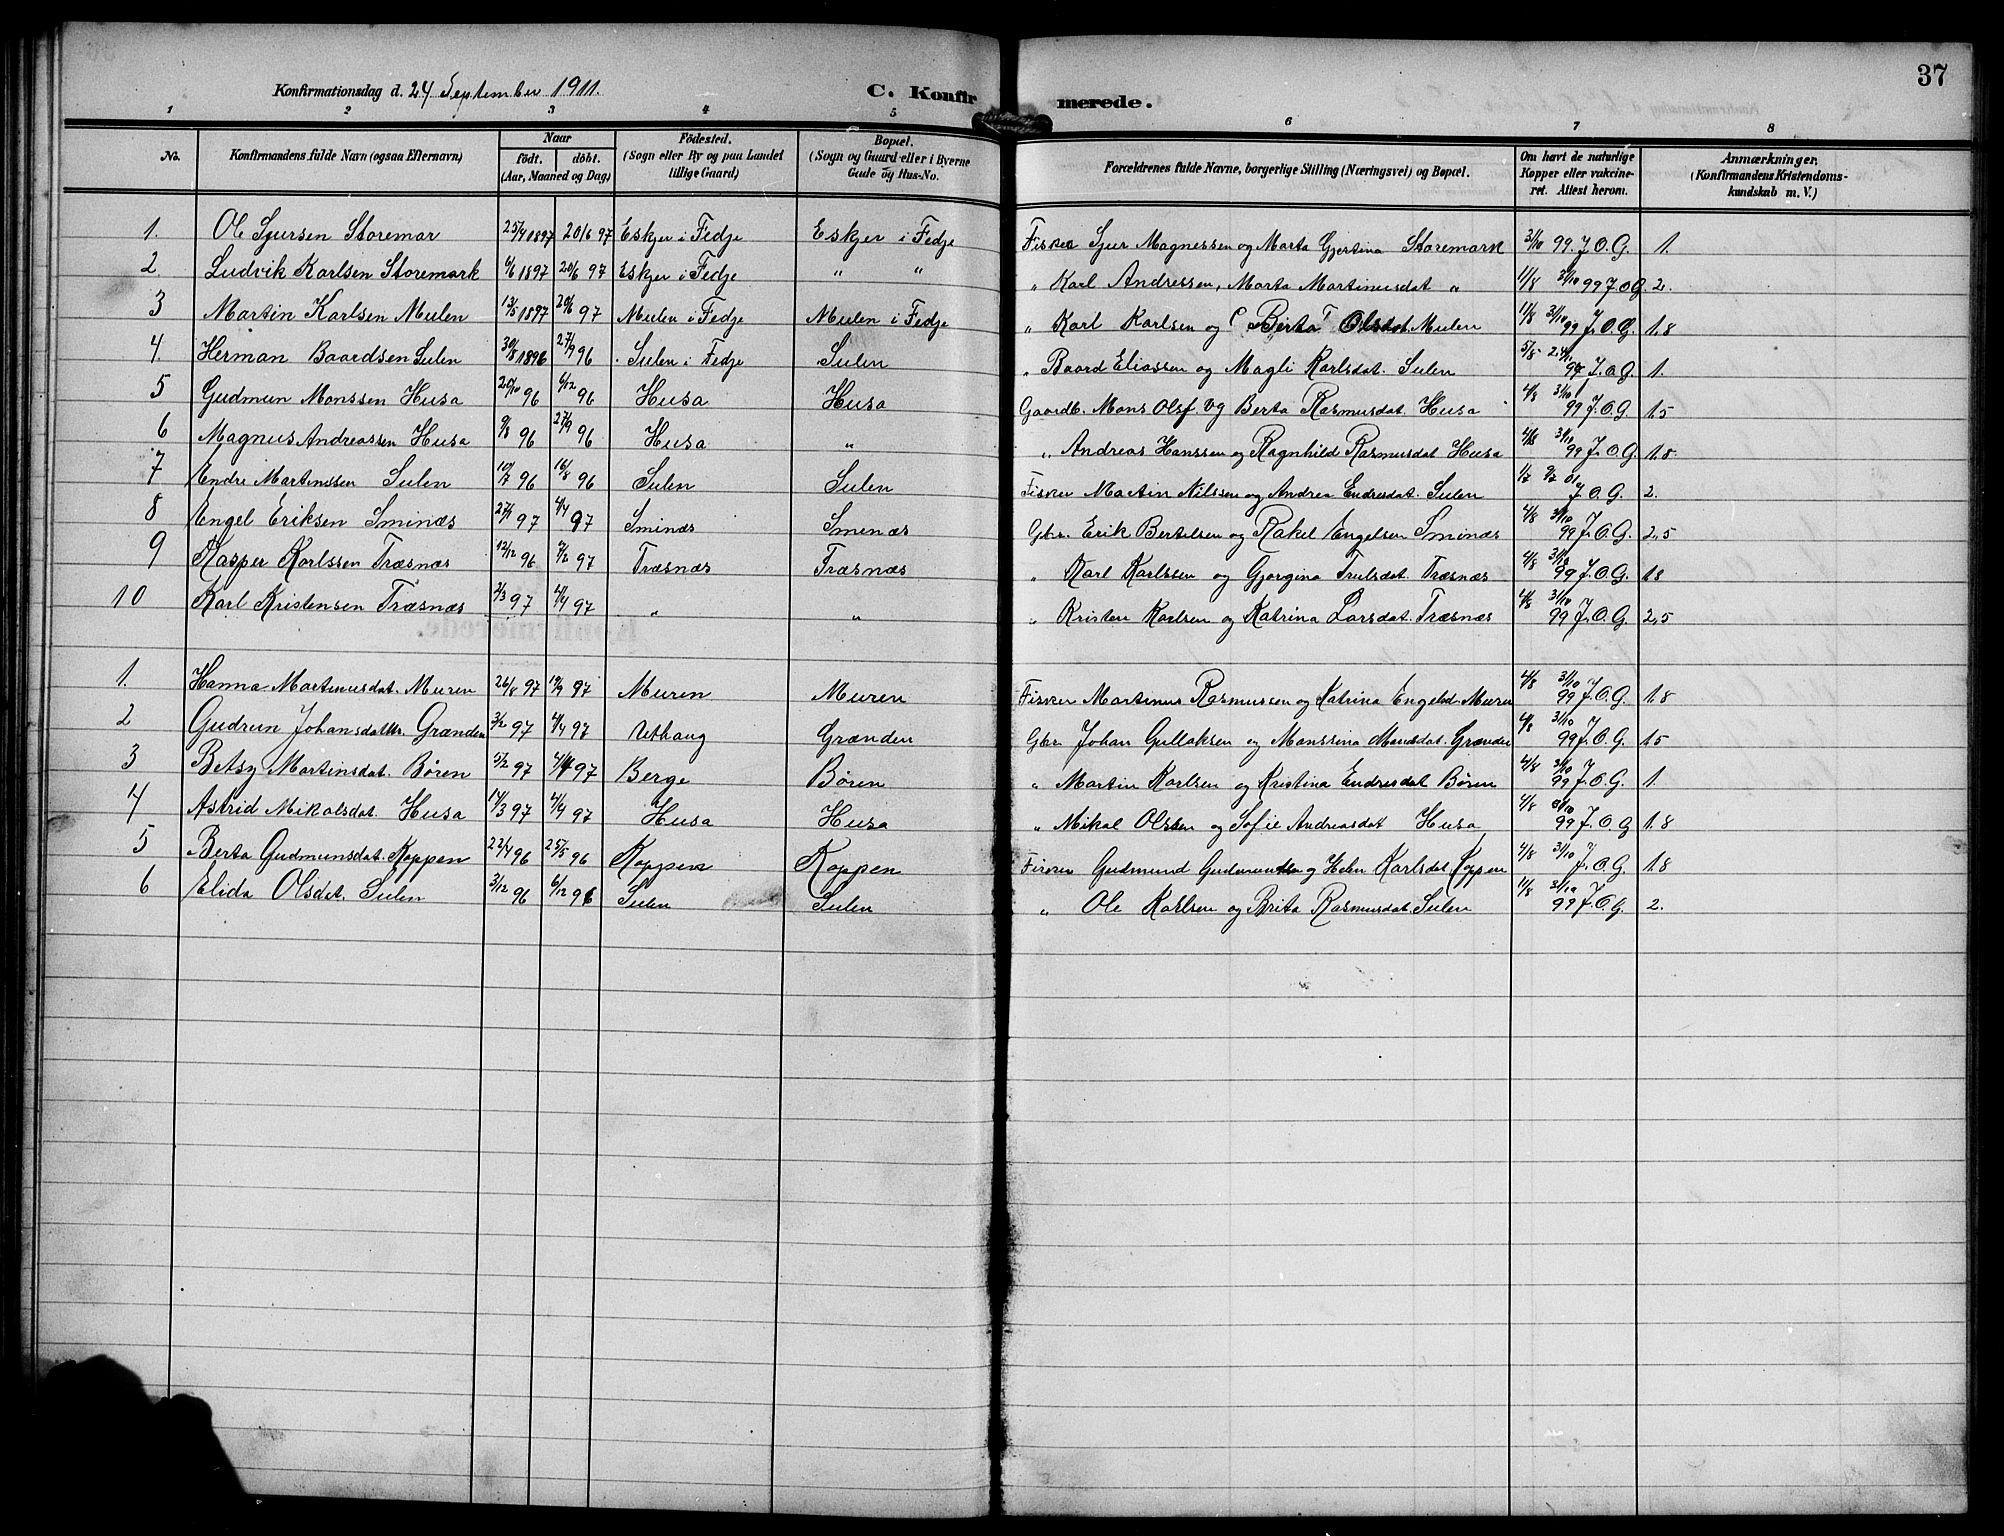 37
Konfirmationsdag d. 24 September 1911.
C. Konfirmerede.
1 2 3 4 5 6 7 8
No.
Konfirmandens fulde Navn (ogsaa Efternavn)
Naar
födt. döbt.
(Aar, Maaned og Dag)
Födested.
(Sogn eller By og paa Landet
tillige Gaard)
Bopæl.
(Sogn og Gaard eller i Byerne
Gade og Hus-No.
Forældrenes fulde Navne, borgerlige Stilling (Næringsvei) og Bopæl.
Om havt de naturlige
Kopper eller vakcine-
ret. Attest herom.
Anmærkninger.
(Konfirmandens Kristendoms-
kundskab m. V.)
1. Ole Sjursen Storemar 25/4 1897 20/6 97 Eskjer i Fedje Eskjer i Fedje Fisker Sjur Magnessen og Marta Gjertina Storemark 3/10 99. J.O.G. 1.
2. Ludvik Karlsen Storemark 6/6 1897 20/6 97 Eskjer i Fedje " " " Karl Andressen, Marta Martinusdat " 11/8 3/10 99 J.O.G. 2.
3 Martin Karlsen Mulen 13/5 1897 20/6 97 Mulen i Fedje Mulen i Fedje " Karl Karlsen og Berta Olsdat. Mulen 11/8 3/10 99 J.O.G. 1.8
4. Herman Baardsen Sulen 30/8 1896 27/9 96 Sulen i Fedje Sulen " Baard Eliassen og Magli Karlsdat. Sulen 5/8 J.O.G 1.
5 Gudmun Monssen Husa 20/10 96 6/12 96 Husa Husa Gaardb. Mons Olsf og Berta Rasmusdat. Husa 4/8 31/10 99 J.O.G. 1.5
6 Magnus Andreassen Husa 9/8 96 27/9 96 Husa " " Andreas Hanssen og Ragnhild Rasmusdat Husa 4/8 31/10 99 J.O.G. 1.8
7 Endre Martinssen Sulen 10/7 96 16/8 96 Sulen Sulen Fisker Martin Nilssen og Andrea Endresdat. Sulen 1/7 9/7 01 J.O.G. 2.
8 Engel Eriksen Sminæs 27/1 97 4/4 97 Sminæs Smenæs Gbr. Erik Bertelsen og Rakel Engelsen Sminæs 4/8 31/10 99 J.O.G. 2,5
9 Kasper Karlssen Træsnæs 12/12 96 7/2 97 Træsnæs Træsnæs " Karl Karlssen og Gjorgina Trulsdat. Træsnæs 4/8 31/10 99 J.O.G. 1.8
10 Karl Kristensen Træsnæs 2/3 97 4/4 97 " " " Kristen Karlsen og Katrina Larsdat. Træsnæs 4/8 31/10 99 J.O.G. 2,5
1. Hanna Martinusdat. Muren 26/8 97 19/9 97 Muren Muren Fisker Martinus Rasmussen og Katrina Engelsd. Muren 4/8 31/10 99 J.O.G. 1.8
2 Gudrun Johansdatter Grænden 3/2 97 4/4 97 Uthaug Grænden Gbr. Johan Gullaksen og Monssina Monsdat. Grænden 4/8 31/10 99 J.O.G. 1.5
3 Betsy Martinsdat. Børen 5/2 97 4/4 97 Berge Børen " Martin Karlsen og Kristina Endresdat Børen 4/8 31/10 99 J.O.G. 1.
4 Astrid Mikalsdat. Husa 14/3 97 4/4 97 Husa Husa " Mikal Olssen og Sofie Andreasdat Husa 4/8 31/10 99 J.O.G 1.8
5 Berta Gudmunsdat. Koppen 22/4 96 25/5 96 Koppen Koppen Fisker Gudmund og Helen Karlsdat. Koppen 4/8 31/10 J.O.G. 1.8
6 Elida Olsdat. Sulen 3/12 96 6/12 96 Sulen Sulen " Ole Karlsen og Brita Rasmusdat. Sulen 11/8 31/10 99 J.O.G. 2.